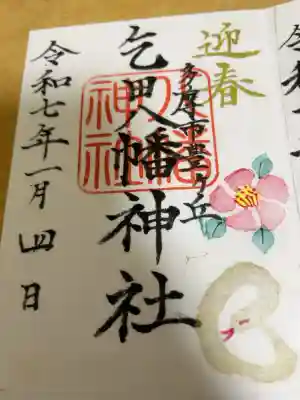 迎春
多摩市豊ヶ丘
乞田八幡神社
八幡
神社
令和七年一月四日